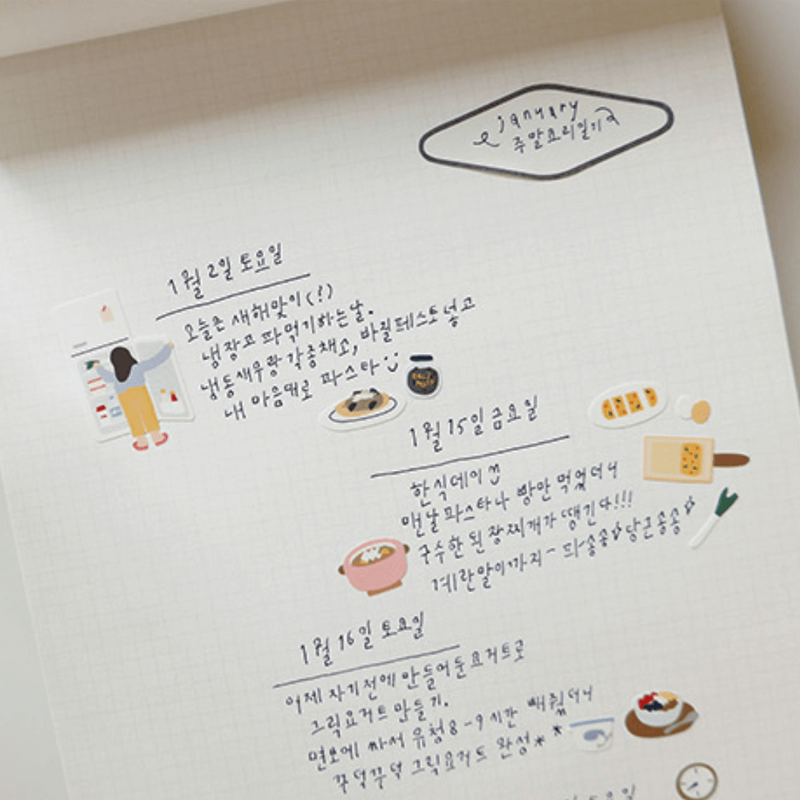 january
주말요리일기
1월 2일 토요일
오늘은 새해맞이(!)
냉장고 파먹기하는날.
냉동새우랑 각종채소, 바질페스토넣고
내 마음대로 파스타
1월 15일 금요일
한식데이
맨날 파스타나 빵만 먹었더니
구수한 된장찌개가 땡긴다!!!
계란말이까지~ 파송송 당근송송
1월 16일 토요일
어제 자기전에 만들어둔요거트로
그릭요거트 만들기.
면보에 싸서 유청 8-9시간 빼줬더니
꾸덕꾸덕 그릭요거트 완성**
토요일